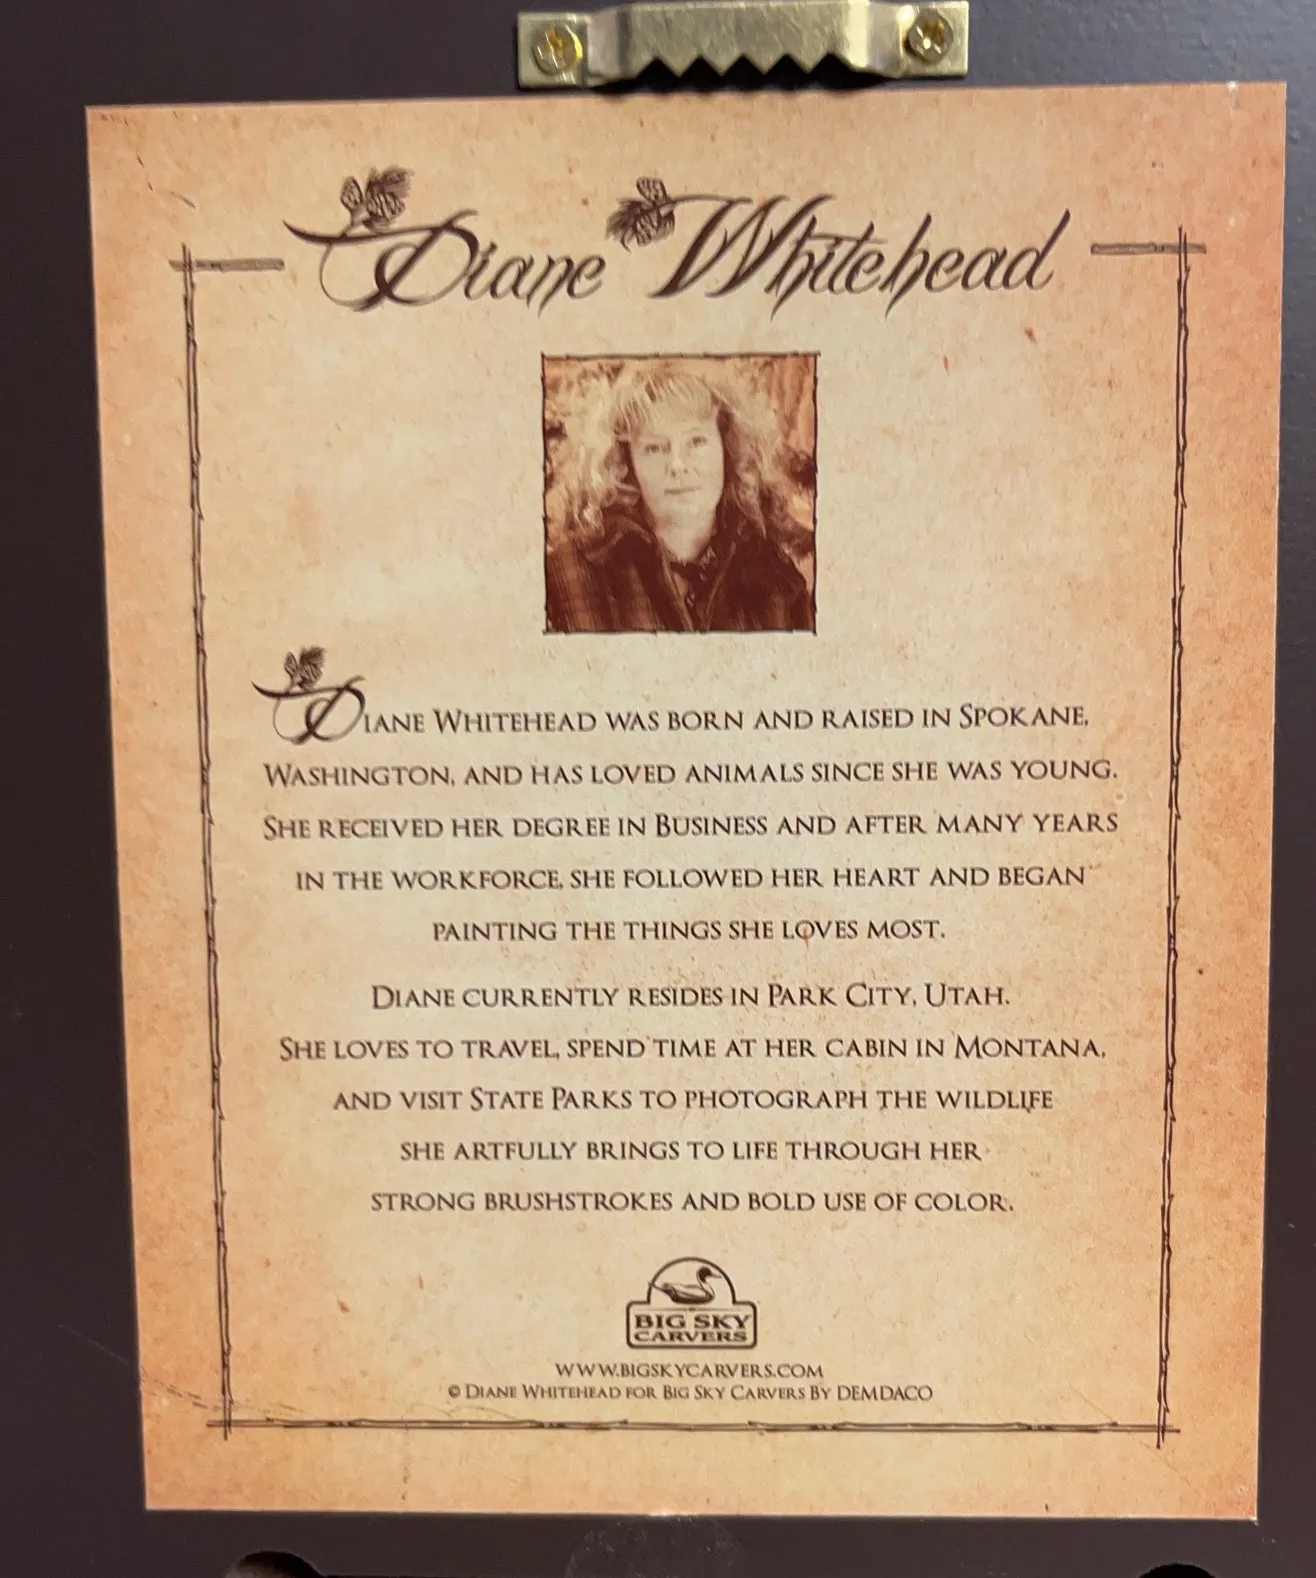 Diane Whitehead
Diane Whitehead was born and raised in Spokane,
Washington, and has loved animals since she was young.
She received her degree in Business and after many years
in the workforce, she followed her heart and began
painting the things she loves most.
Diane currently resides in Park City, Utah.
She loves to travel, spend time at her cabin in Montana,
and visit State Parks to photograph the wildlife
she artfully brings to life through her
strong brushstrokes and bold use of color.
BIG SKY
CARVERS
www.bigskycarvers.com
© Diane Whitehead for Big Sky Carvers By DEMDACO